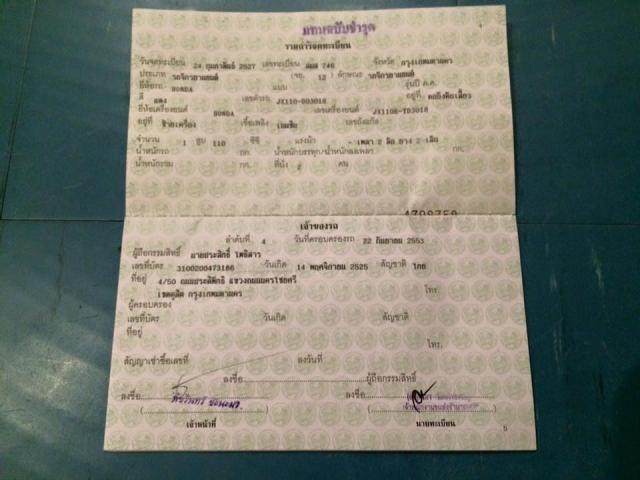 แทนฉบับชำรุด
รายการจดทะเบียน
วันจดทะเบียน 24 กุมภาพันธ์ 2527 เลขทะเบียน 746 จังหวัด กรุงเทพมหานคร
ประเภท รถจักรยานยนต์ (รย. 12) ลักษณะ รถจักรยานยนต์
ยี่ห้อรถ HONDA แบบ รุ่นปี ค.ศ.
สี แดง เลขตัวรถ JX110-003018 อยู่ที่ คอถังคิดเลี้ยว
ยี่ห้อเครื่องยนต์ HONDA เลขเครื่องยนต์
อยู่ที่ ซ้ายเครื่อง เชื้อเพลิง เบนซิน เลขถังแก๊ส
จำนวน 1 สูบ 110 ซีซี แรงม้า - เพลา 2 ล้อ ยาง 2 เส้น
น้ำหนักรถ กก. น้ำหนักบรรทุก/น้ำหนักลงเพลา กก.
น้ำหนักรวม กก. ที่นั่ง 2 คน
เจ้าของรถ
ลำดับที่ 4 วันที่ครอบครองรถ 22 กันยายน 2553
ผู้ถือกรรมสิทธิ์ นายประสิทธิ์ โพธิสาร
เลขที่บัตร 3100200473186 วันเกิด 14 พฤศจิกายน 2525 สัญชาติ ไทย
ที่อยู่ 4/50 ถนนประดิพัทธิ์ แขวงถนนนครไชยศรี
เขตดุสิต กรุงเทพมหานคร โทร.
ผู้ครอบครอง
เลขที่บัตร วันเกิด สัญชาติ
ที่อยู่ โทร.
สัญญาเช่าซื้อเลขที่ ลงวันที่
ลงชื่อ ผู้ถือกรรมสิทธิ์
ลงชื่อ ลงชื่อ
เจ้าหน้าที่ นายทะเบียน
5